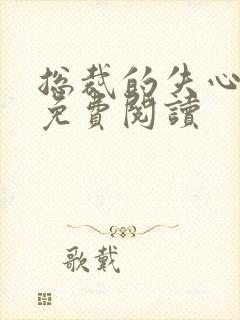 总裁的失心
免費閱讀
歌戴